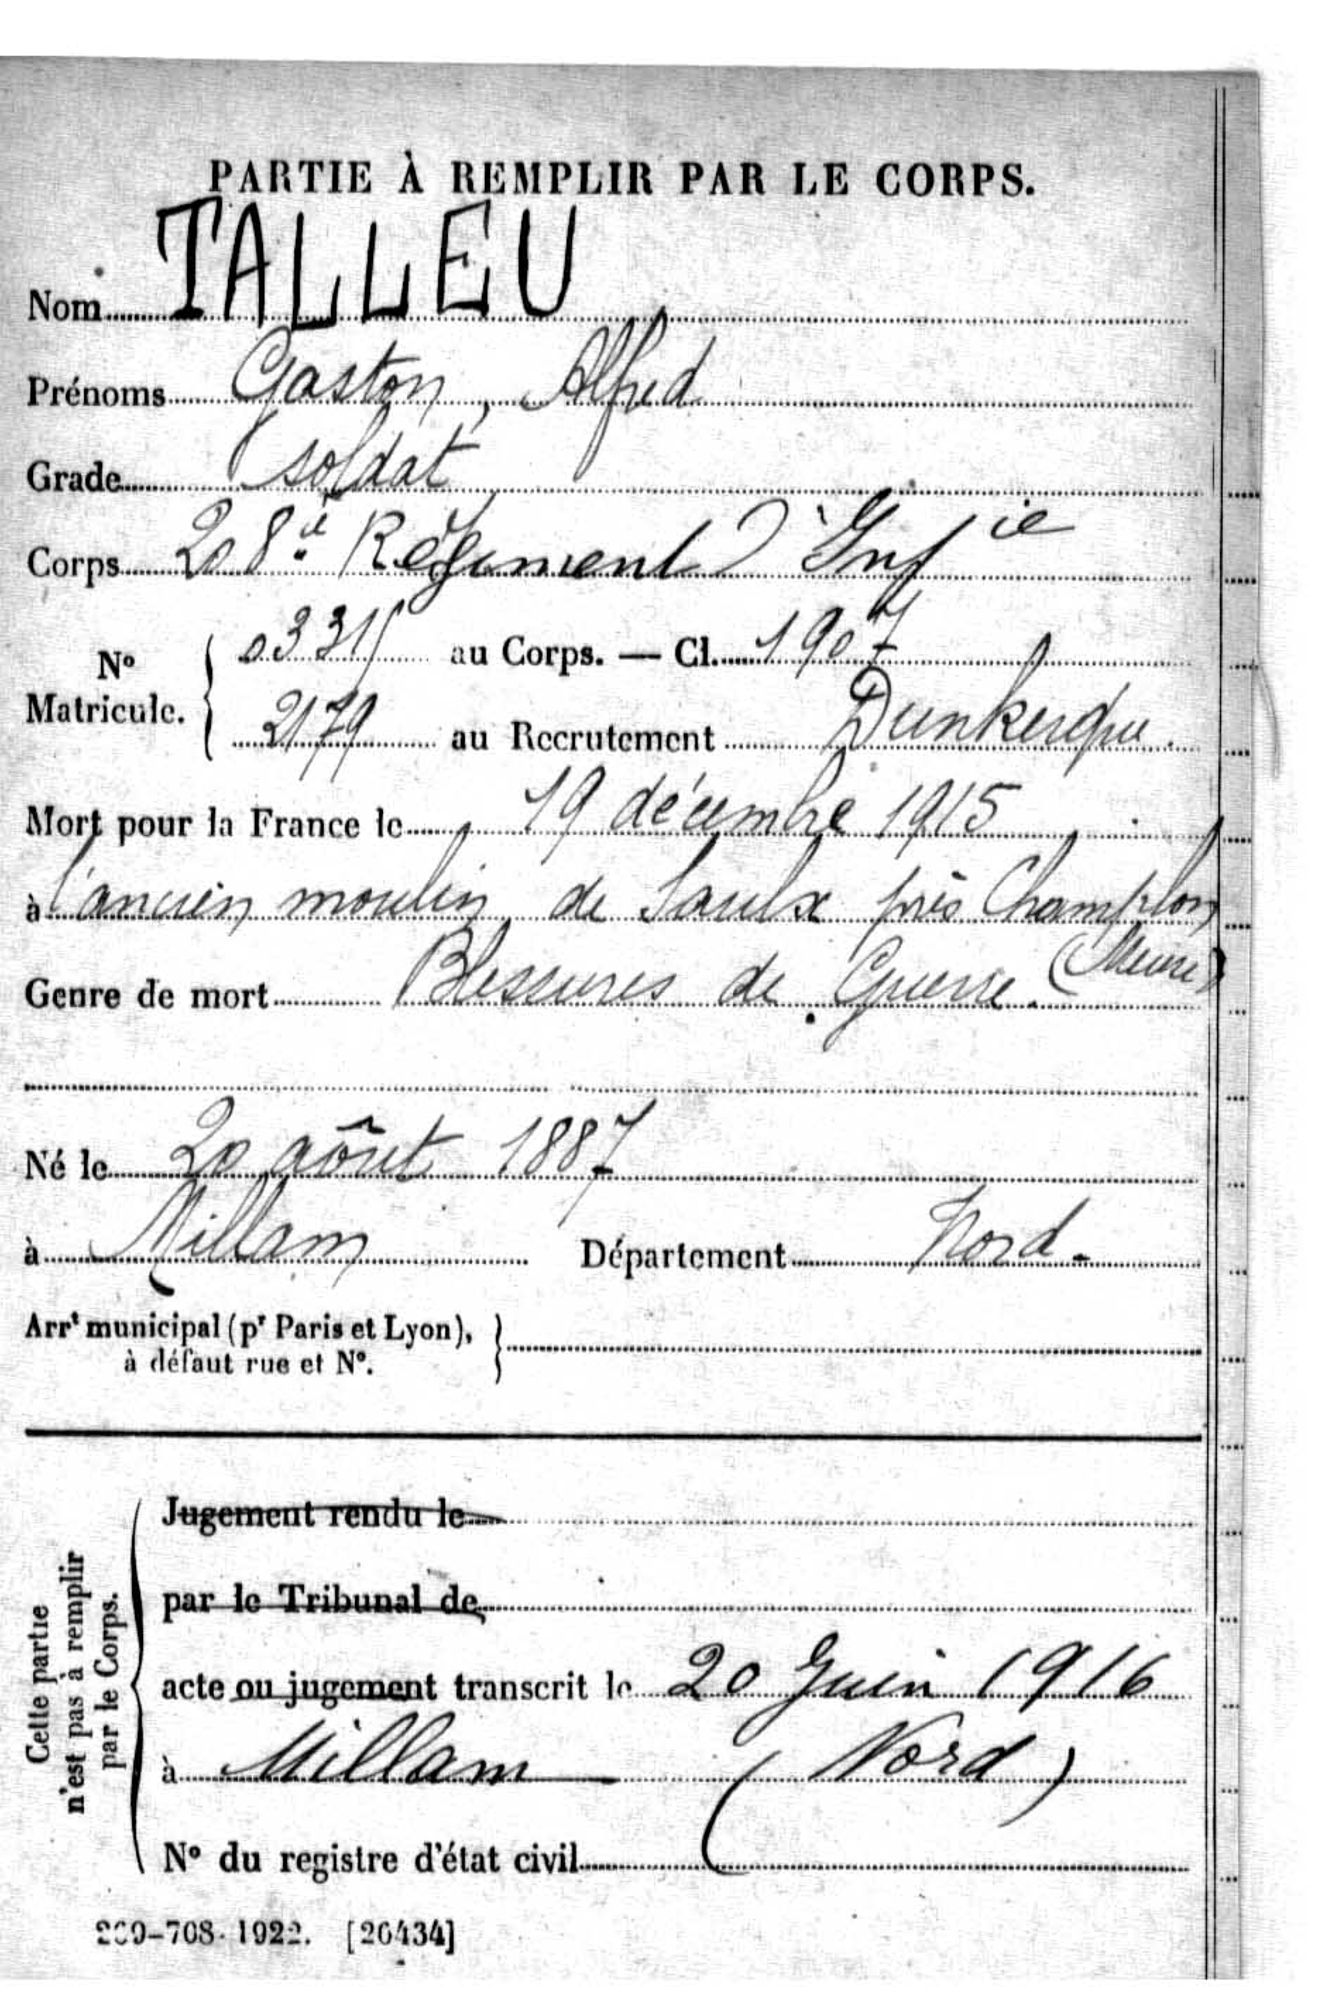 PARTIE À REMPLIR PAR LE CORPS.
Nom TALLEU
Prénoms Gaston, Alfred
Grade soldat
Corps 208e Régiment d'Infie
No Matricule. 03315 au Corps. — Cl. 1907
2179 au Recrutement Dunkerque
Mort pour la France le 19 décembre 1915
à l'ancien moulin de Saulx près Champlon
(Meuse)
Genre de mort Blessures de Guerre.
Né le 20 août 1887
à Millam Département Nord-
Arrt municipal (pr Paris et Lyon),
à défaut rue et No.
Cette partie
n'est pas à remplir
par le Corps.
Jugement rendu le
par le Tribunal de
acte ou jugement transcrit le 20 Juin 1916
à Millam (Nord)
No du registre d'état civil
269-708-1922. [26434]